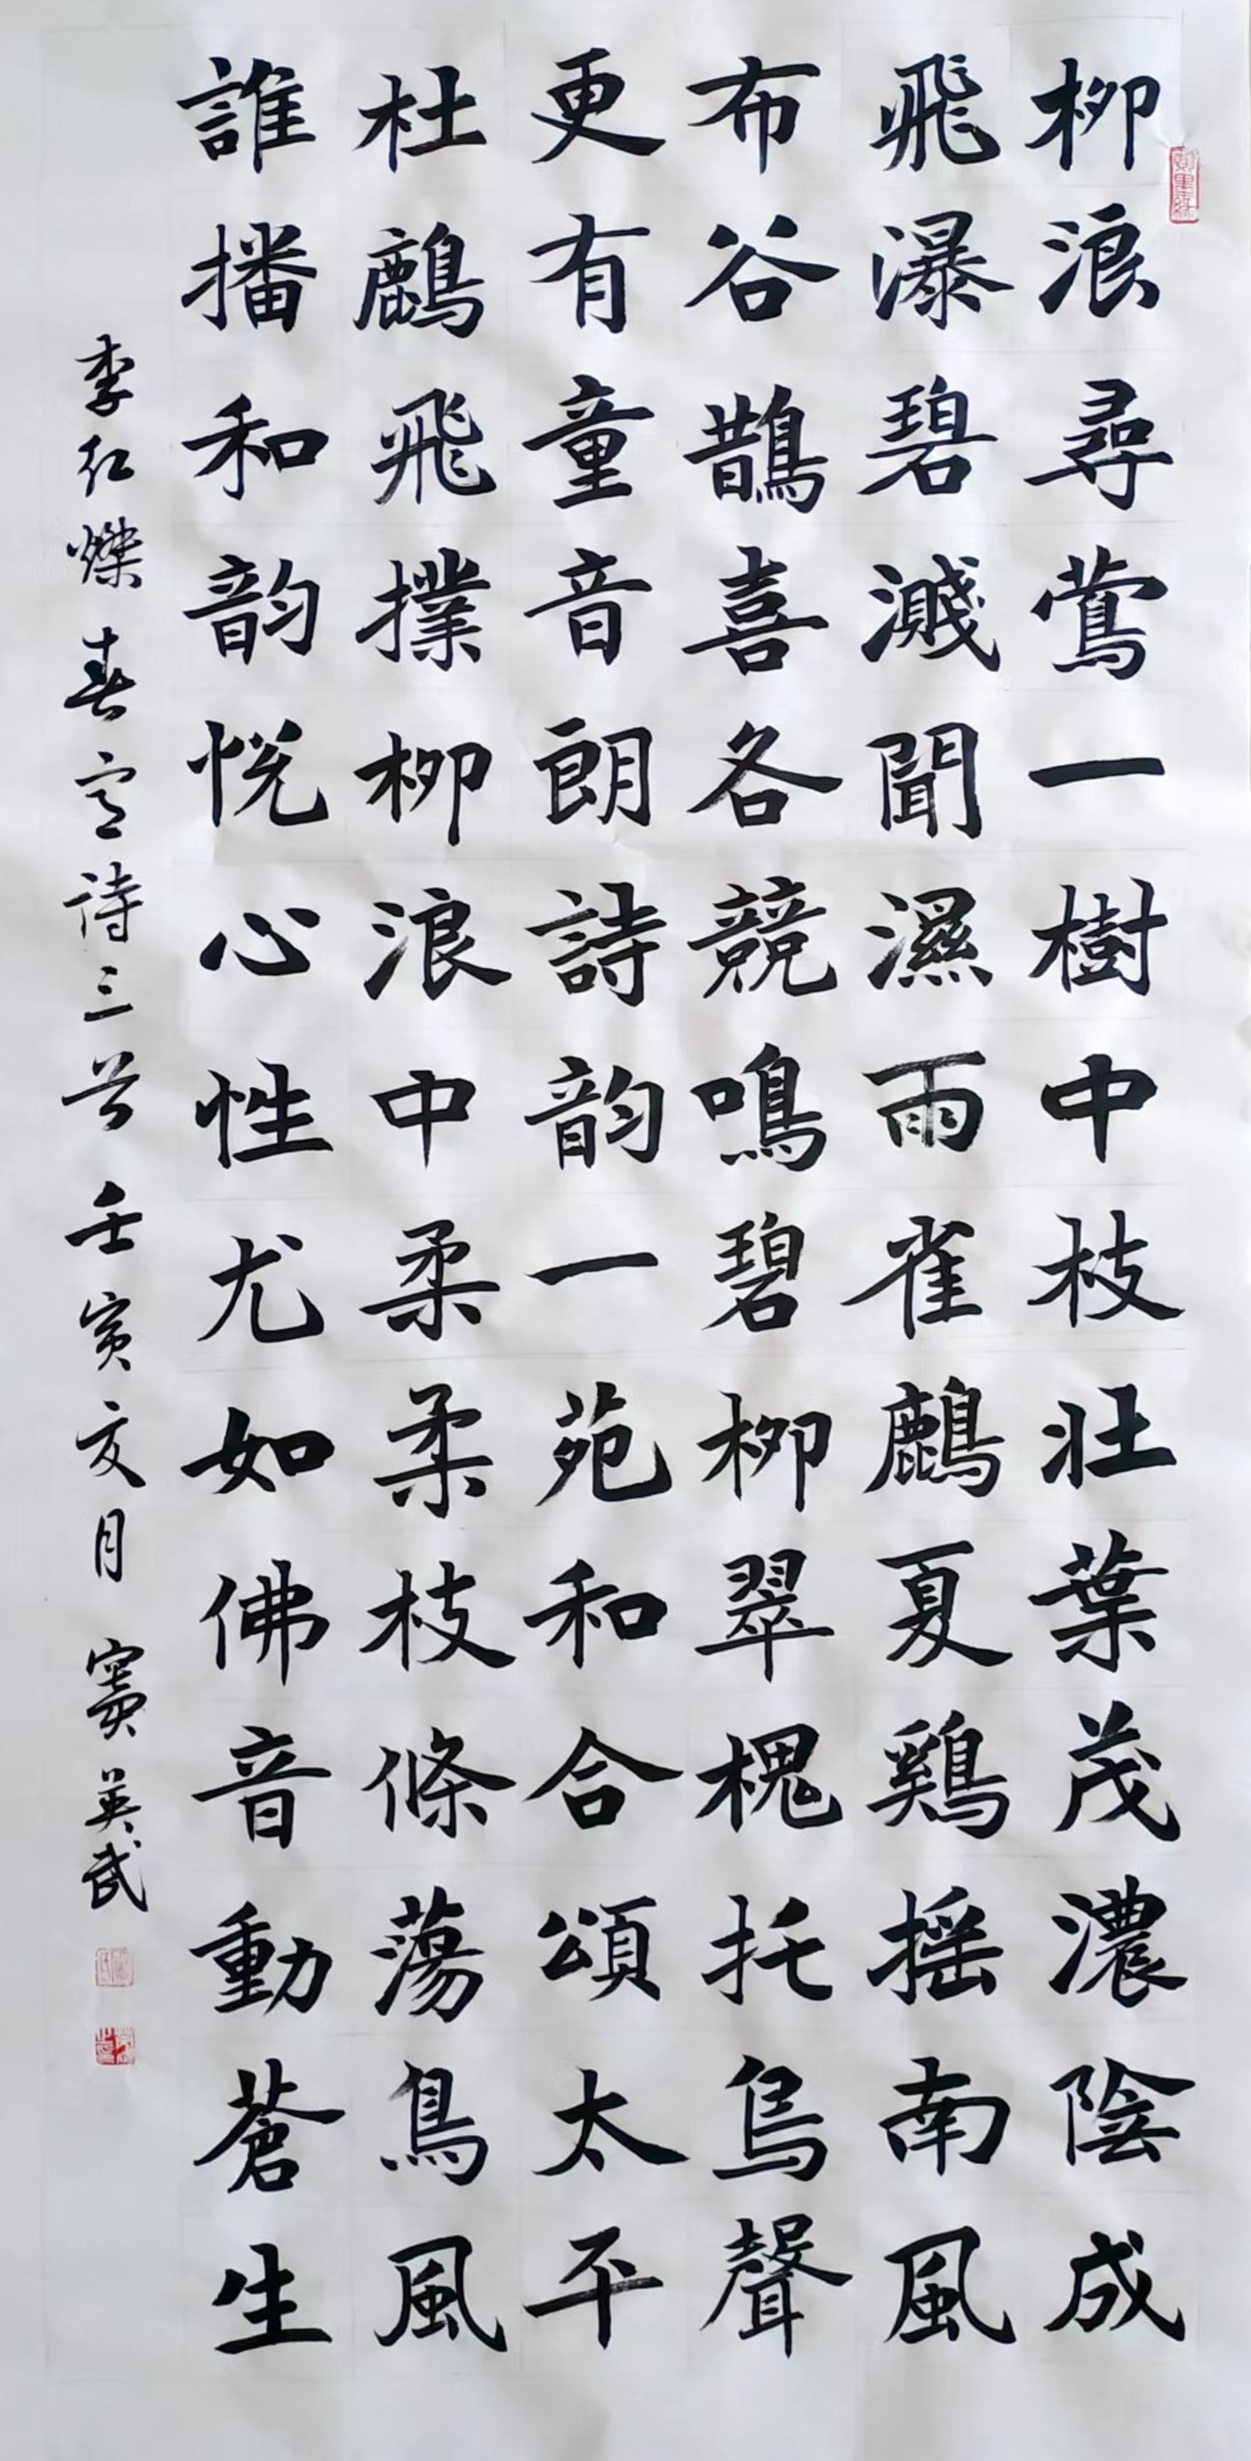 柳浪尋鶯一樹中枝壯葉茂濃陰成
飛瀑碧濺聞濕雨雀鷓夏鷄摇南風
布谷鵲喜各競鳴碧柳翠槐托鳥聲
更有童音朗詩韵一苑和合頌太平
杜鷓飛撲柳浪中柔柔枝條蕩鳥風
誰播和韵悦心性尤如佛音動蒼生
李红燦春言诗三首 壬寅交月 竇英武